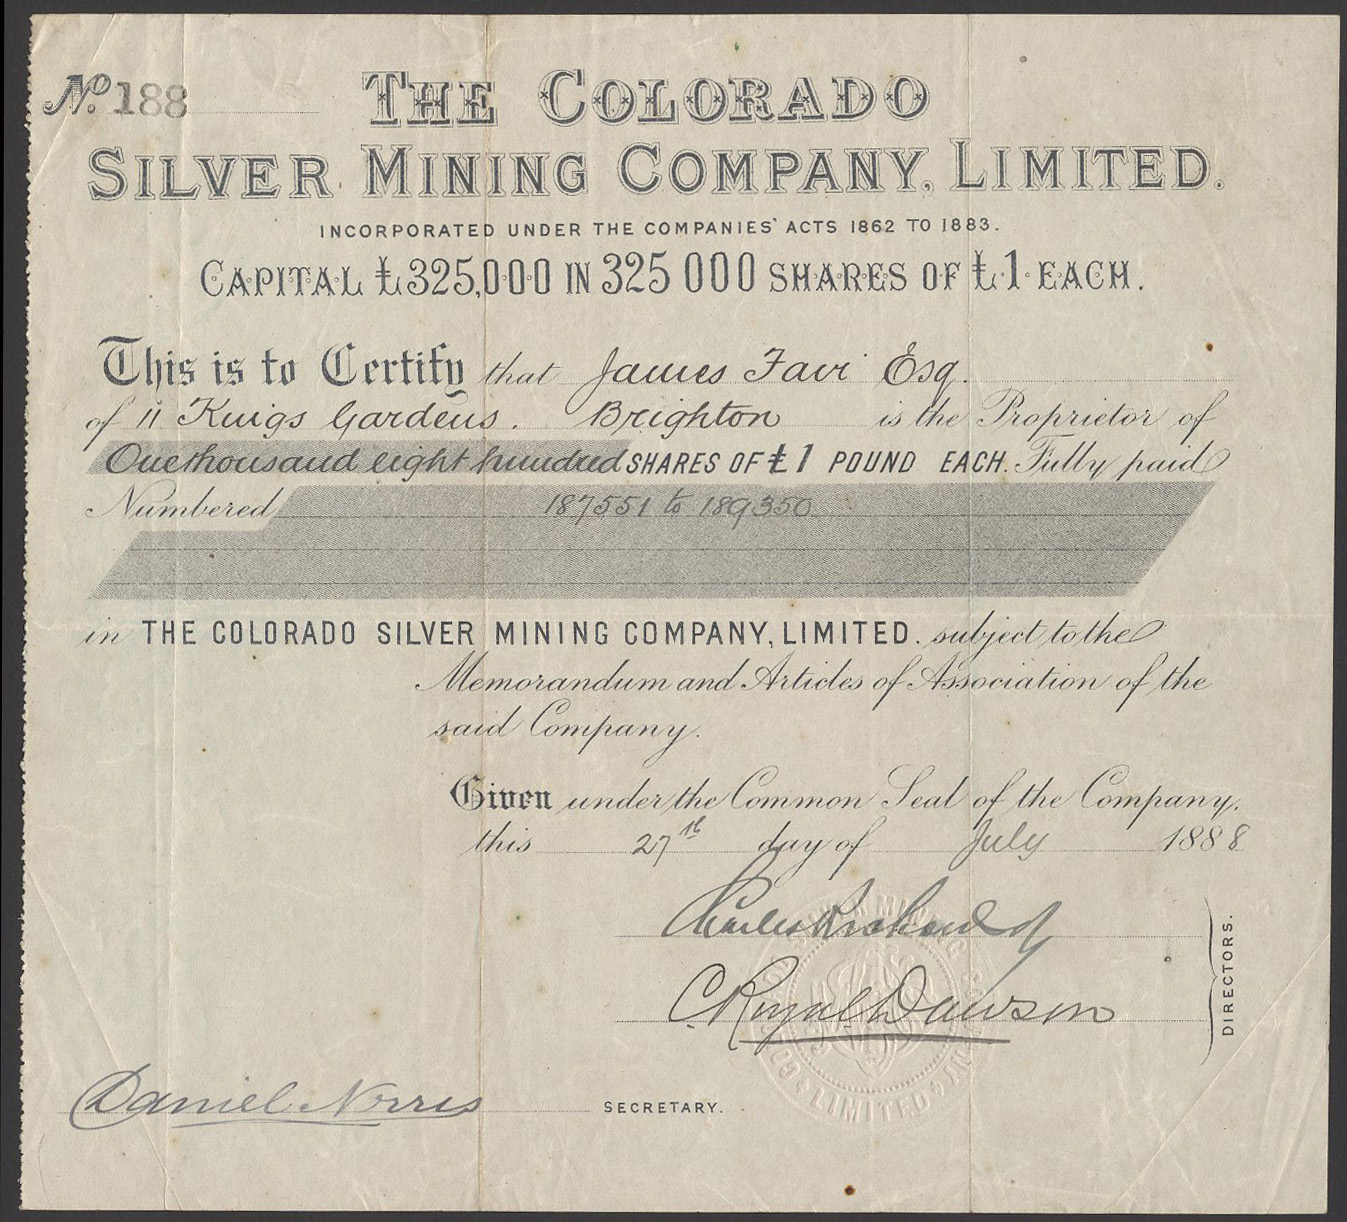 No. 188
THE COLORADO
SILVER MINING COMPANY, LIMITED.
INCORPORATED UNDER THE COMPANIES' ACTS 1862 TO 1883.
CAPITAL £325,000 IN 325 000 SHARES OF £1 EACH.
This is to Certify that James Favi Esq.
of 11 Kings Gardens. Brighton is the Proprietor of
One thousand eight hundred SHARES OF £1 POUND EACH. Fully paid
Numbered 187551 to 189350
in THE COLORADO SILVER MINING COMPANY, LIMITED. subject to the
Memorandum and Articles of Association of the
said Company.
Given under the Common Seal of the Company,
this 27th day of July 1888
Charles
C. Royal Dawson
DIRECTORS.
Daniel Norris SECRETARY.
LIMITED